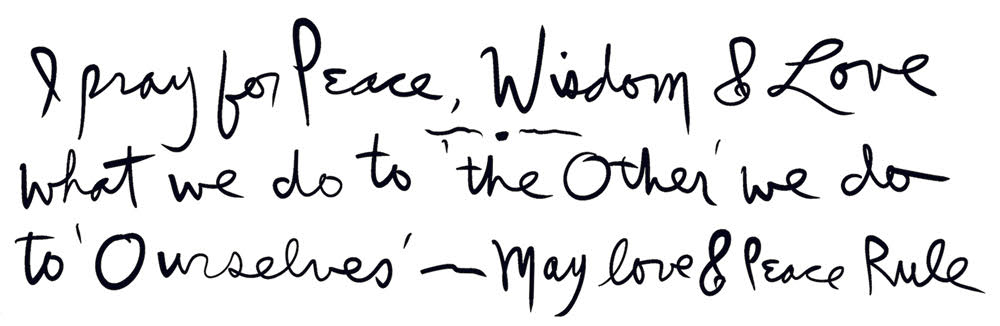 I pray for Peace, Wisdom & Love
what we do to 'the Other' we do
to 'Ourselves' — May love & Peace Rule